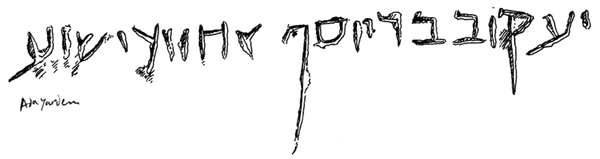 יעקוב בר יוסף אחוי דישוע
Ada Yardeni